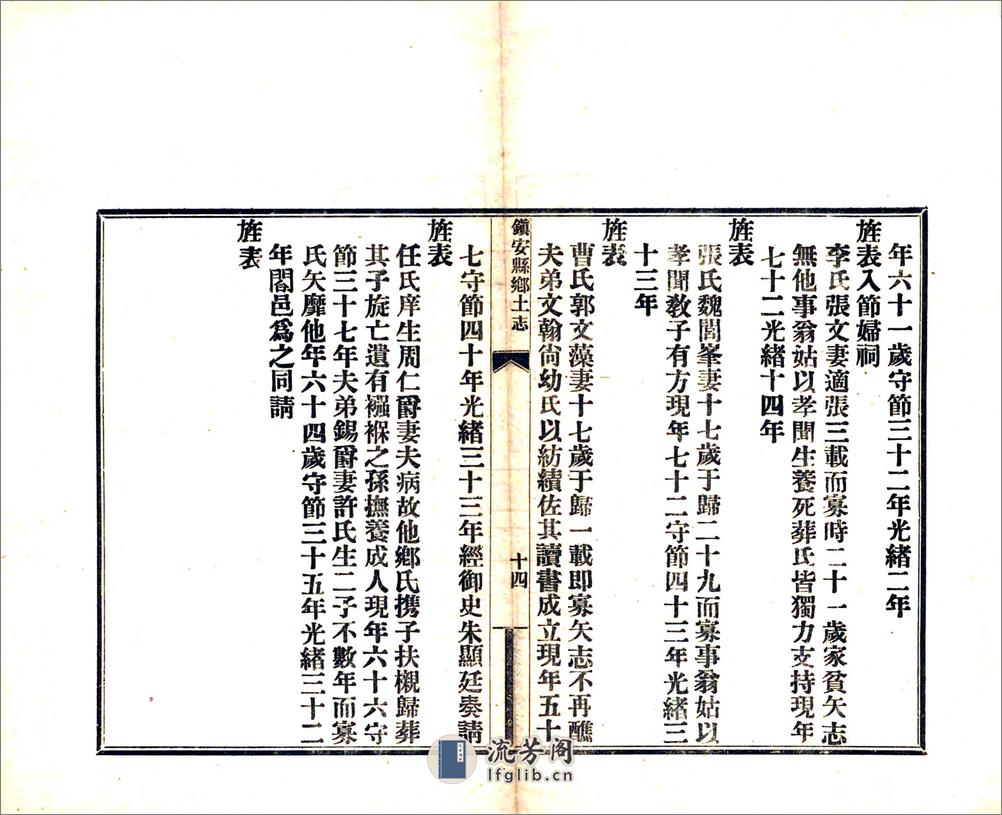 年六十一歲守節三十二年光緒二年
旌表入節婦祠
李氏張文妻適張三載而寡時二十一歲家貧矢志
無他事翁姑以孝聞生養死葬氏皆獨力支持現年
七十二光緒十四年
旌表
張氏魏閭峯妻十七歲于歸二十九而寡事翁姑以
孝聞敎子有方現年七十二守節四十三年光緒三
十三年
旌表
曹氏郭文藻妻十七歲于歸一載即寡矢志不再醮
夫弟文翰尙幼氏以紡績佐其讀書成立現年五十
鎭安縣鄉土志
十四
七守節四十年光緒三十三年經御史朱顯廷奏請
旌表
任氏庠生周仁爵妻夫病故他鄉氏携子扶櫬歸葬
其子旋亡遺有襁褓之孫撫養成人現年六十六守
節三十七年夫弟錫爵妻許氏生二子不數年而寡
氏矢靡他年六十四歲守節三十五年光緒三十二
年閤邑爲之同請
旌表
流芳阁
lfglib.cn